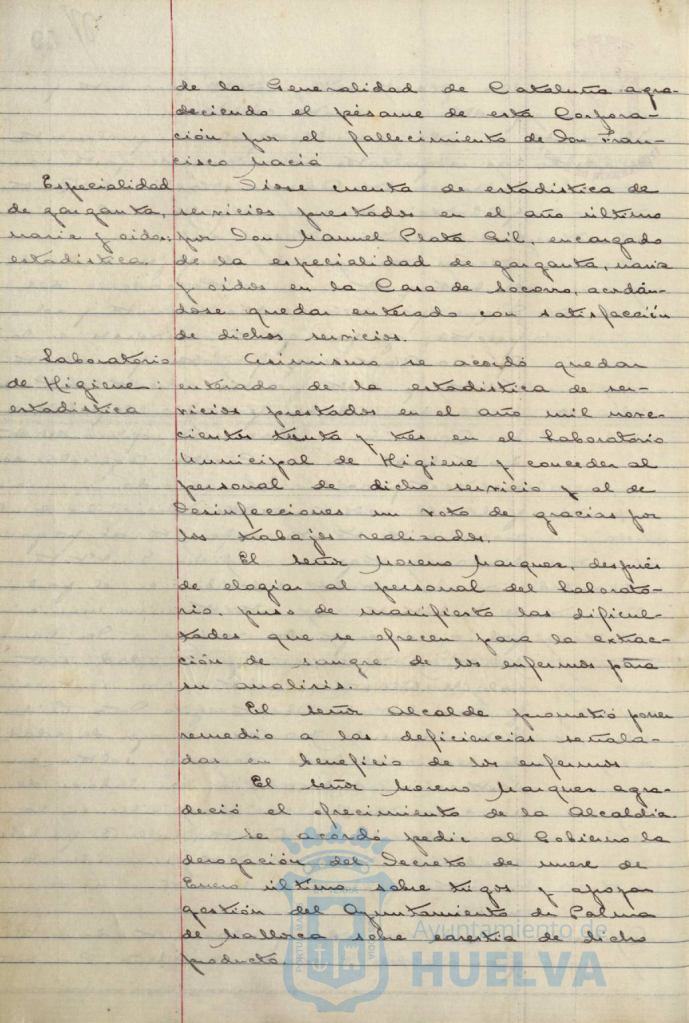 de la Generalidad de Cataluña agra-
deciendo el pésame de esta Corpora-
ción por el fallecimiento de Don Fran-
cisco Maciá
Especialidad
de garganta,
nariz y oidos:
estadística.
Diose cuenta de estadística de
servicios prestados en el año último
por Don Manuel Plata Gil, encargado
de la especialidad de garganta, nariz
y oidos en la Casa de Socorro, acordán-
dose quedar enterado con satisfacción
de dichos servicios.
Laboratorio
de Higiene:
estadística
Asimismo se acordó quedar
enterado de la estadística de ser-
vicios prestados en el año mil nove-
cientos treinta y tres en el Laboratorio
Municipal de Higiene y conceder al
personal de dicho servicio y al de
Desinfecciones un voto de gracias por
los trabajos realizados.
El señor Moreno Marquez, después
de elogiar al personal del Laborato-
rio, puso de manifiesto las dificul-
tades que se ofrecen para la extrac-
ción de sangre de los enfermos para
su analisis.
El señor Alcalde prometió poner
remedio a las deficiencias señala-
das en beneficio de los enfermos
El señor Moreno Marquez agra-
deció el ofrecimiento de la Alcaldía.
Se acordó pedir al Gobierno la
derogación del Decreto de nueve de
Enero último sobre trigos y apoyar
gestión del Ayuntamiento de Palma
de Mallorca sobre carestia de dicho
producto.
Ayuntamiento de
HUELVA